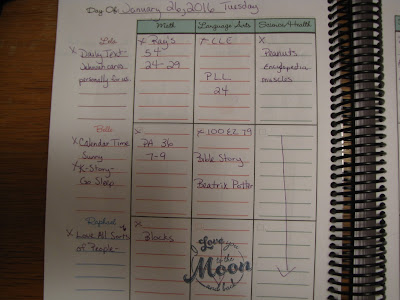 Day Of: January 26, 2016 Tuesday
Math
Language Arts
Science/Health
Lola
x Daily Text
Jehovah cares
personally for us
x Ray's
54
24-29
x CLE
PLL
24
x
Peanuts
Encyclopedia
muscles
Bella
x Calendar Time
Sunny
x K-Story-
Go Sleep
x
PA. 36
7-9
x 100 EZ 79
Bible Story
Beatrix Potter
Raphael
x Love All Sorts
of People-
x
Blocks
I Love you
to the
Moon
and back